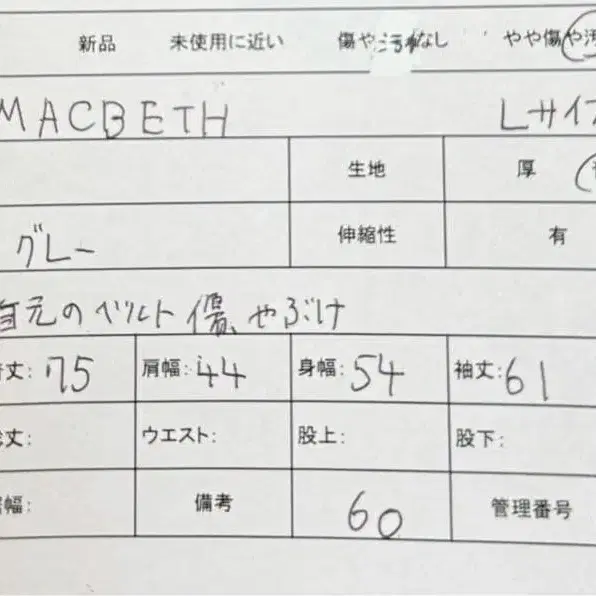 新品 未使用に近い 傷や汚れなし やや傷や汚
MACBETH Lサイズ
生地 厚
グレー 伸縮性 有
首元のベルト 傷、やぶけ
着丈: 75 肩幅: 44 身幅: 54 袖丈: 61
総丈: ウエスト: 股上: 股下:
裾幅: 備考 60 管理番号